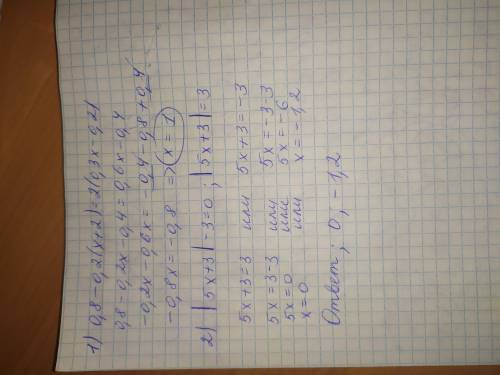 1) 0,8 - 0,2(x+2) = 2(0,3x - 0,2)
0,8 - 0,2x - 0,4 = 0,6x - 0,4
-0,2x - 0,6x = -0,4 - 0,8 + 0,4
-0,8x = -0,8 => x = 1
2) |5x+3| - 3 = 0 ; |5x+3| = 3
5x+3 = 3 или 5x+3 = -3
5x = 3-3 или 5x = -3-3
5x = 0 или 5x = -6
x = 0 или x = -1,2
Ответ; 0, -1,2